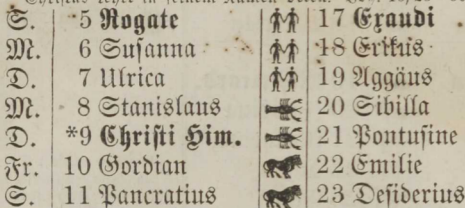 S. 5 Rogate 17 Exaudi
M. 6 Susanna 18 Erikus
D. 7 Ulrica 19 Aggäus
M. 8 Stanislaus 20 Sibilla
D. *9 Christi Him. 21 Pontusine
Fr. 10 Gordian 22 Emilie
S. 11 Pancratius 23 Desiderius